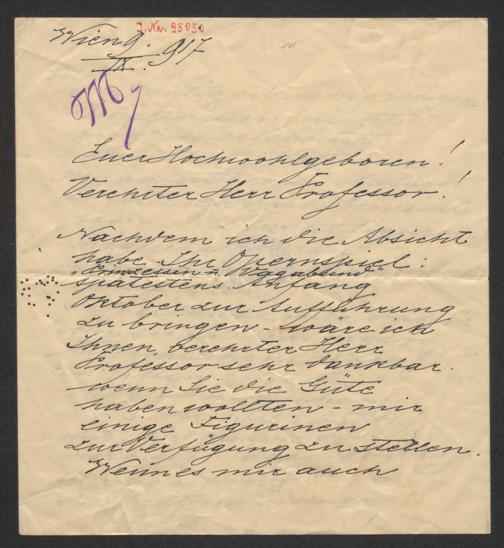 J. Nr. 95030
Wien 9. 917
IX.
Euer Hochwohlgeboren!
Verehrter Herr Professor!
Nachdem ich die Absicht
habe Ihr Opernspiel:
"Prinzessin u. Vagabund"
spätestens Anfang
Oktober zur Aufführung
zu bringen - wäre ich
Ihnen, verehrter Herr
Professor sehr dankbar.
wenn Sie die Güte
haben wollten - mir
einige Figurinen
zur Verfügung zu stellen.
Wenn es mir auch